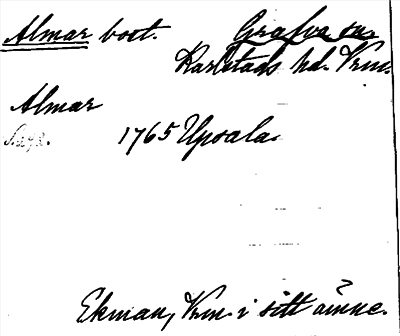 Almar bost. Grafva sn,
Karlstads hd. Vrm.
Almar
1765 Upsala.
S. 292.
Ekman, Vrm. i sitt ämne.